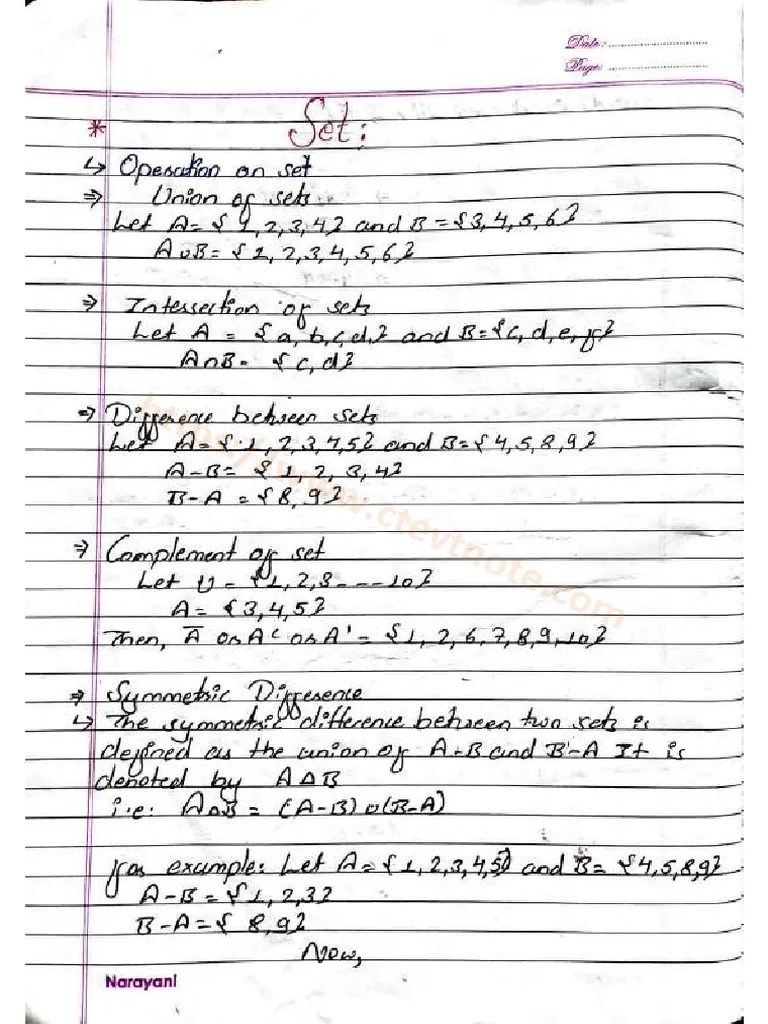 Date: ..............................
Page: ..............................
* Set:
↳ Operation on set
⇒ Union of sets
Let A = {1, 2, 3, 4} and B = {3, 4, 5, 6}
A∪B = {1, 2, 3, 4, 5, 6}
⇒ Intersection of sets
Let A = {a, b, c, d,} and B = {c, d, e, f}
A∩B = {c, d}
⇒ Difference between sets
Let A = {1, 2, 3, 4, 5} and B = {4, 5, 8, 9}
A-B = {1, 2, 3, 4}
B-A = {8, 9}
https://www.ctevtnote.com
⇒ Complement of set
Let U = {1, 2, 3 - - - 10}
A = {3, 4, 5}
Then, A̅ or Aᶜ or A' = {1, 2, 6, 7, 8, 9, 10}
⇒ Symmetric Difference
↳ The symmetric difference between two sets is
defined as the union of A-B and B-A It is
denoted by A∆B
i.e: A∆B = (A-B) ∪ (B-A)
for example: Let A = {1, 2, 3, 4, 5} and B = {4, 5, 8, 9}
A-B = {1, 2, 3}
B-A = {8, 9}
Now,
Narayani